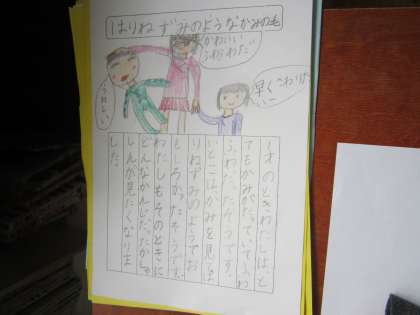 はりねずみのようなかみのも
かわいい
ふわふわだ
うれしい
早くさわりた
い
1才のときわたしは、と
てもかみがたっていてふわ
ふわだったそうです。
いとこはかみを見て、は
りねずみのようでお
もしろかったそうです。
わたしもそのときに
どんなかんじだったか
しんが見たくなりま
した。